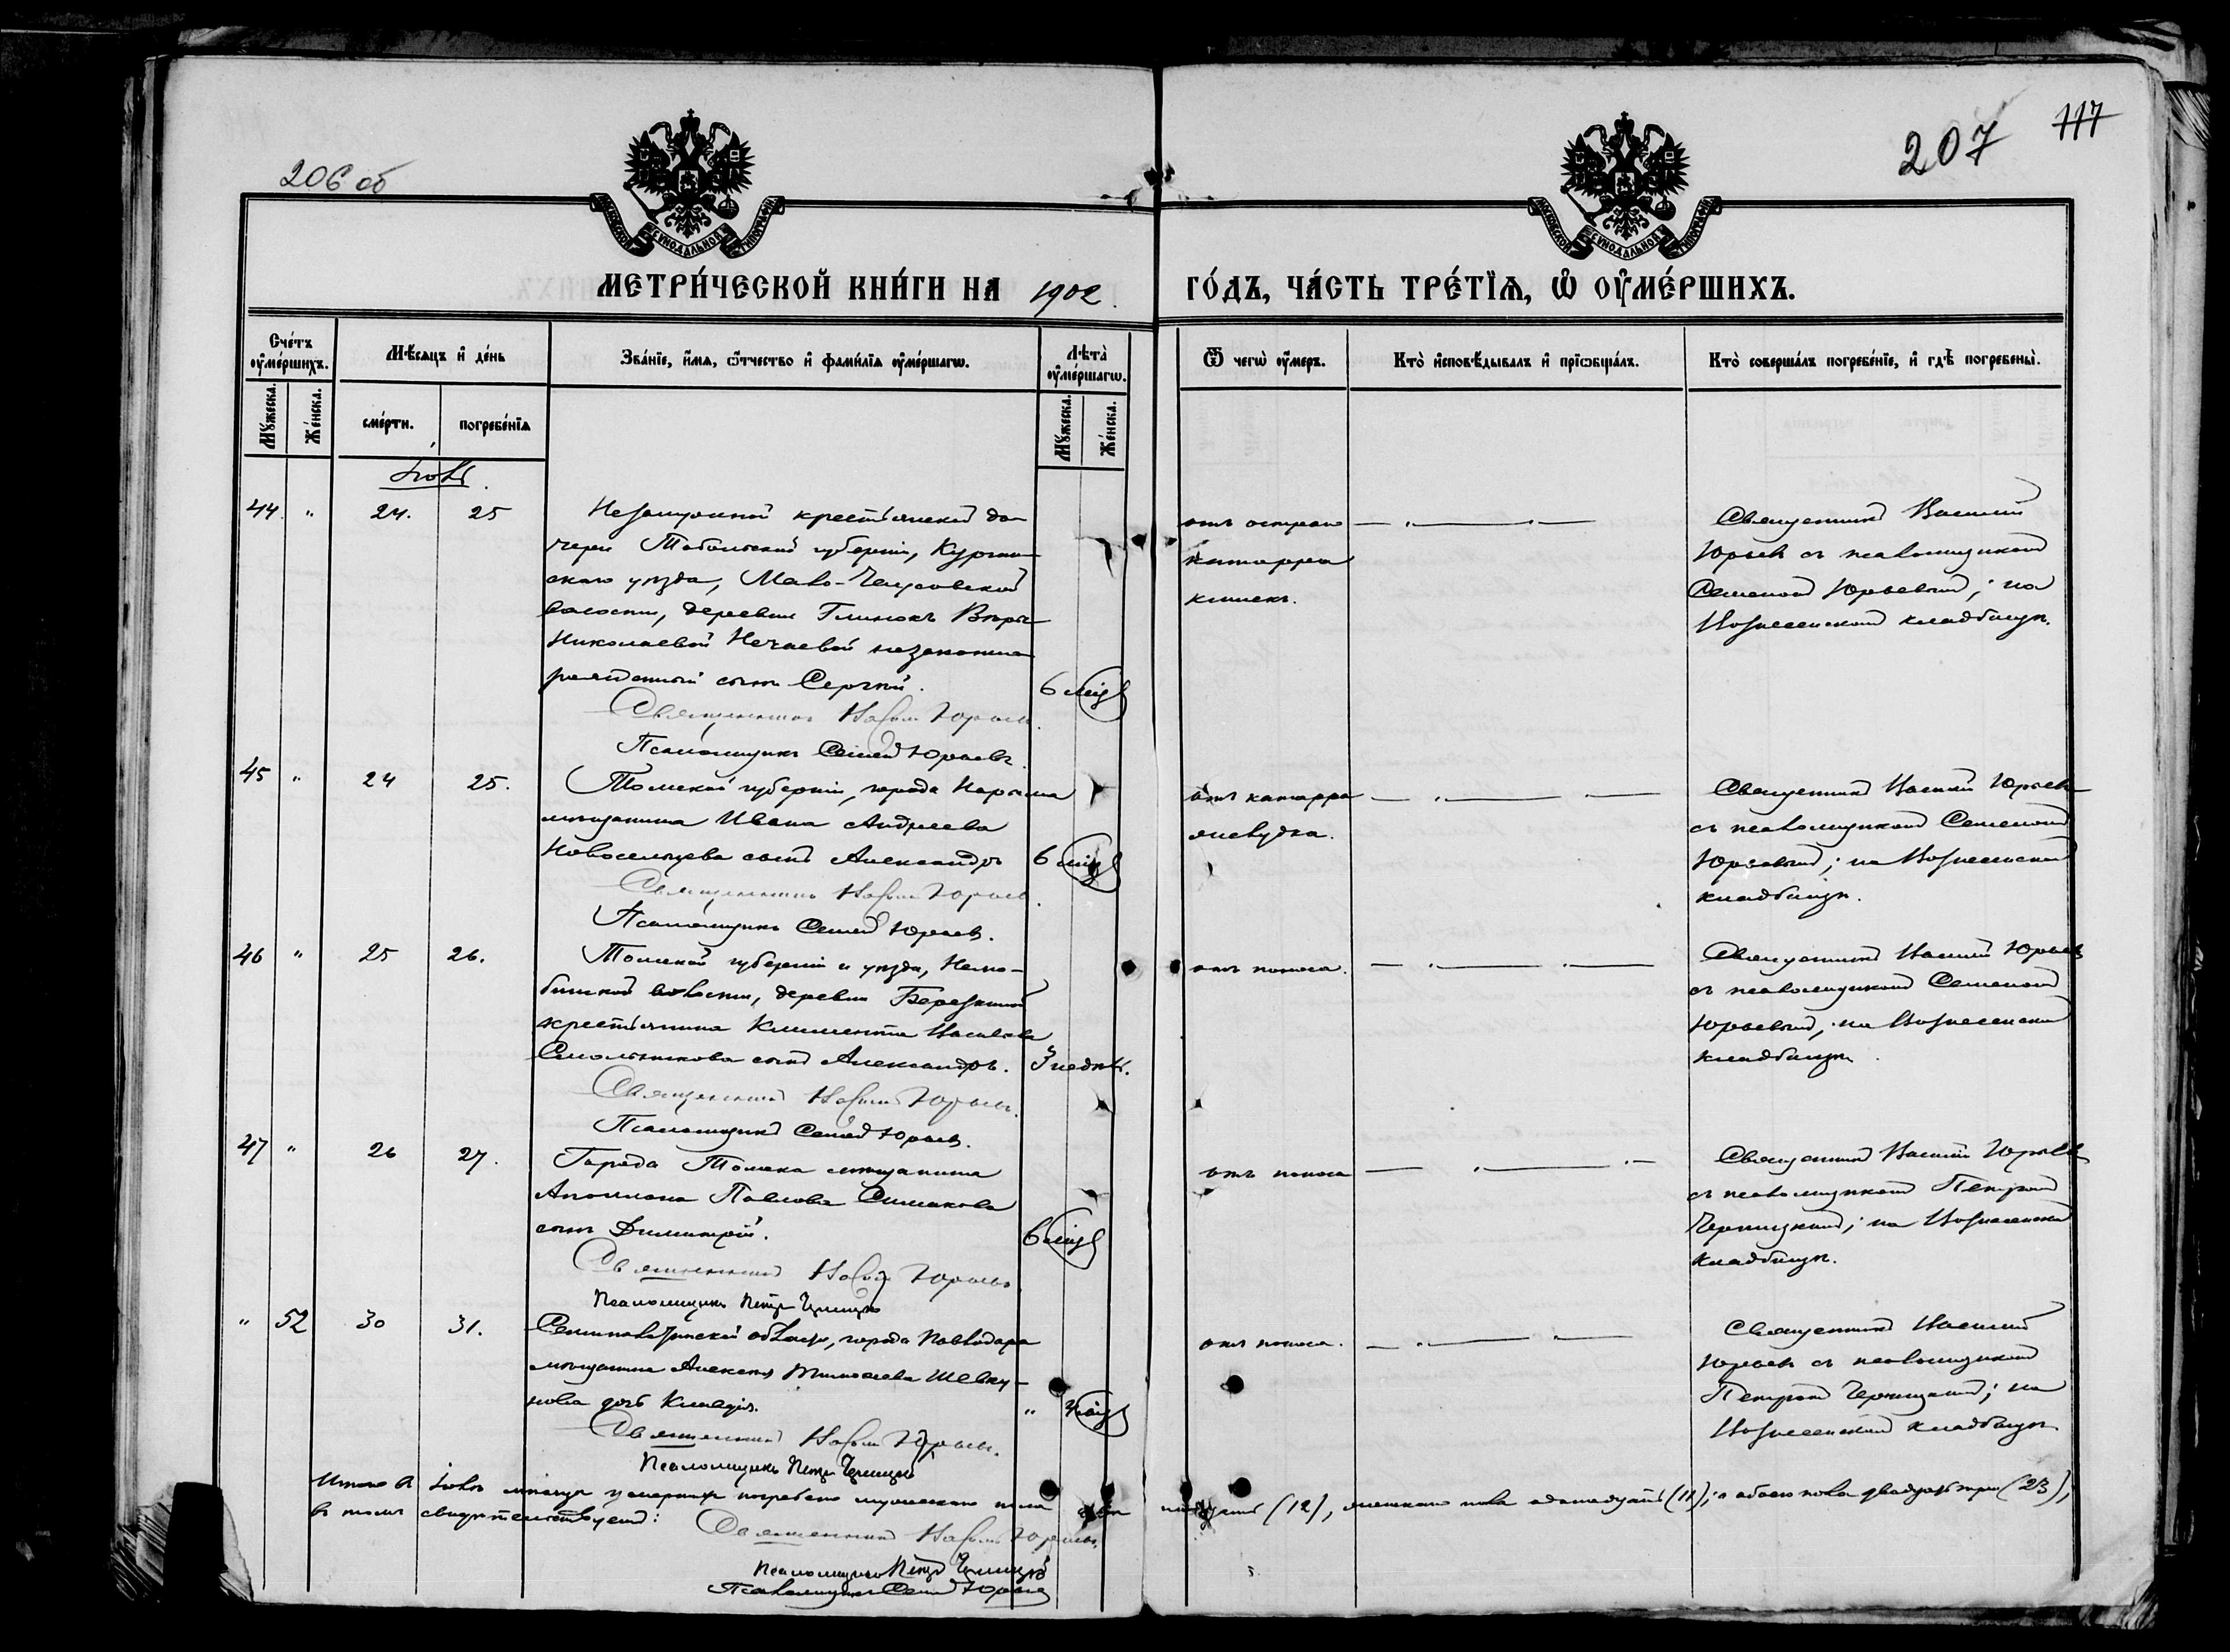 206 об
207
117
МОСКОВСКОЙ СѴНОДАЛЬНОЙ ТИПОГРАФІИ
МОСКОВСКОЙ СѴНОДАЛЬНОЙ ТИПОГРАФІИ
МЕТРИ́ЧЕСКОЙ КНИ́ГИ НА 1902 ГО́ДЪ, ЧА́СТЬ ТРЕ́ТЇѦ, Ѽ ОУ҆МЕ́РШИХЪ.
Сче́тъ оу҆ме́ршихъ.
Мꙋ́жеска.
Же́нска.
Мѣ́сѧцъ и҆ де́нь
сме́рти.
погребе́нїѧ
Зва́нїе, и҆́мѧ, ѻ҆́тчество и҆ фами́лїѧ оу҆ме́ршагѡ.
Лѣ̑та̀ оу҆ме́ршагѡ.
Мꙋ́жеска.
Же́нска.
Ѿ чегѡ̀ оу҆́меръ.
Кто̀ и҆сповѣ́дывалъ и҆ прїѡбща́лъ.
Кто̀ соверша́лъ погребе́нїе, и҆ гдѣ̀ погребены̀.
Іюль.
44. " 24. 25
Незамужней крестьянской до-
чери Тобольской губерніи, Курган-
скаго уѣзда, Мало-Чаусовской
волости, деревни Глинокъ Вѣры
Николаевой Нечаевой незаконно-
рожденный сынъ Сергій.
6 мѣс.
Священникъ Василій Юрьевъ.
Псаломщикъ Семенъ Юрьевъ.
отъ остраго
катарра
кишекъ.
Священникъ Василій
Юрьевъ съ псаломщикомъ
Семеномъ Юрьевымъ; на
Вознесенскомъ кладбищѣ.
45 " 24 25.
Томской губерніи, города Нарыма
мѣщанина Ивана Андреева
Новосельцева сынъ Александръ
6 мѣс.
Священникъ Василій Юрьевъ.
Псаломщикъ Семенъ Юрьевъ.
отъ катарра
желудка.
Священникъ Василій Юрьевъ
съ псаломщикомъ Семеномъ
Юрьевымъ; на Вознесенскомъ
кладбищѣ.
46 " 25 26.
Томской губерніи и уѣзда, Нелю-
бинской волости, деревни Березкиной
крестьянина Климента Васильева
Смольникова сынъ Александръ.
3 недѣл.
Священникъ Василій Юрьевъ.
Псаломщикъ Семенъ Юрьевъ.
отъ поноса.
Священникъ Василій Юрьевъ
съ псаломщикомъ Семеномъ
Юрьевымъ; на Вознесенскомъ
кладбищѣ.
47 " 26 27.
Города Томска мѣщанина
Аполлона Павлова Симакова
сынъ Димитрій.
6 мѣс.
Священникъ Василій Юрьевъ
Псаломщикъ Петръ
отъ поноса
Священникъ Василій Юрьевъ
съ псаломщикомъ Петромъ
на Вознесенскомъ
кладбищѣ.
" 52 30 31.
Семипалатинской области, города Павлодара
мѣщанина Алексѣя Тимофеева Шевку-
нова дочь Клавдія.
" мѣс.
Священникъ Василій Юрьевъ.
Псаломщикъ Петръ
отъ поноса.
Священникъ Василій
Юрьевъ съ псаломщикомъ
Петромъ на
Вознесенскомъ кладбищѣ
Итого въ іюлѣ мѣсяцѣ умершихъ погребено мужескаго пола двѣнадцать (12), женскаго пола одиннадцать (11); а обоего пола двадцать три (23),
въ томъ свидѣтельствуемъ:
Священникъ Василій Юрьевъ.
Псаломщикъ Петръ
Псаломщикъ Семенъ Юрьевъ